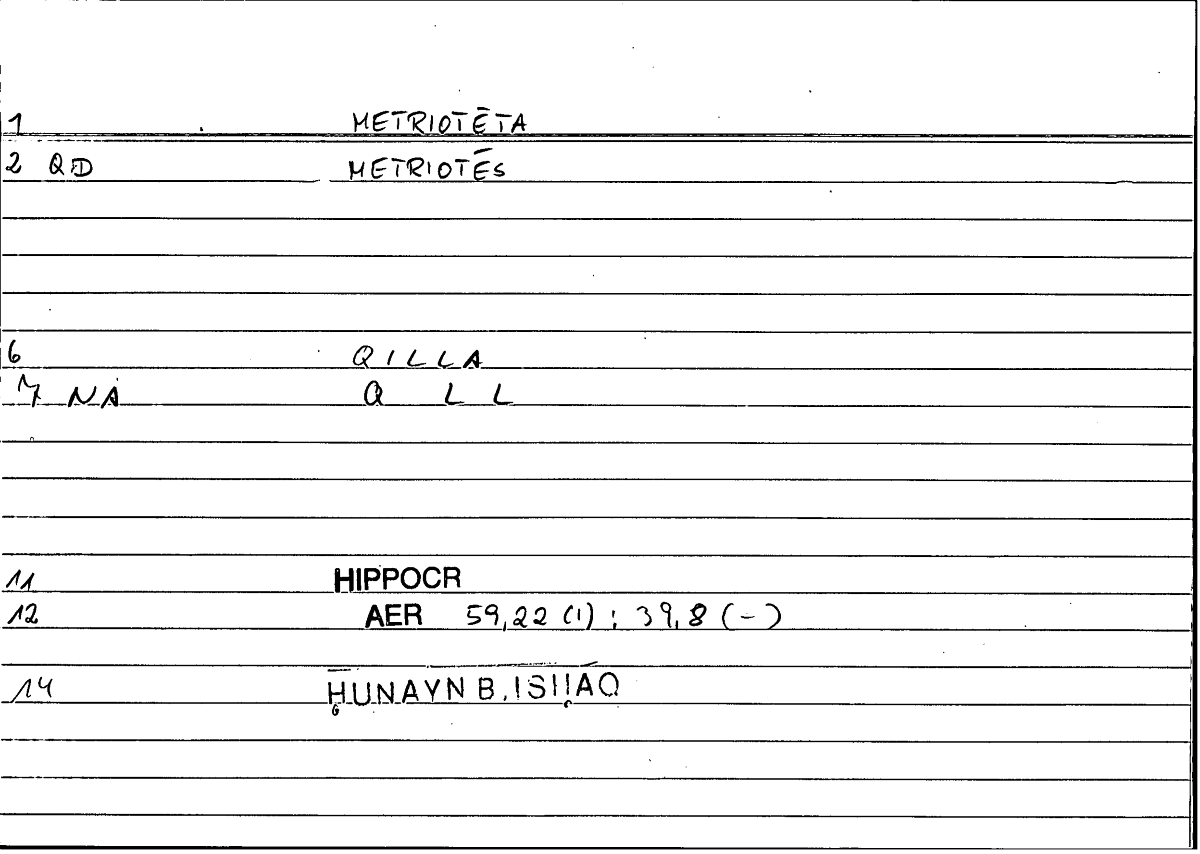 1 METRIOTĒTA
2 QD METRIOTĒS
6 QILLA
7 NA QILL
11 HIPPOCR
12 AER 59,22 (1) ; 39,8 (-)
14 ḤUNAYN B. ISḤĀQ